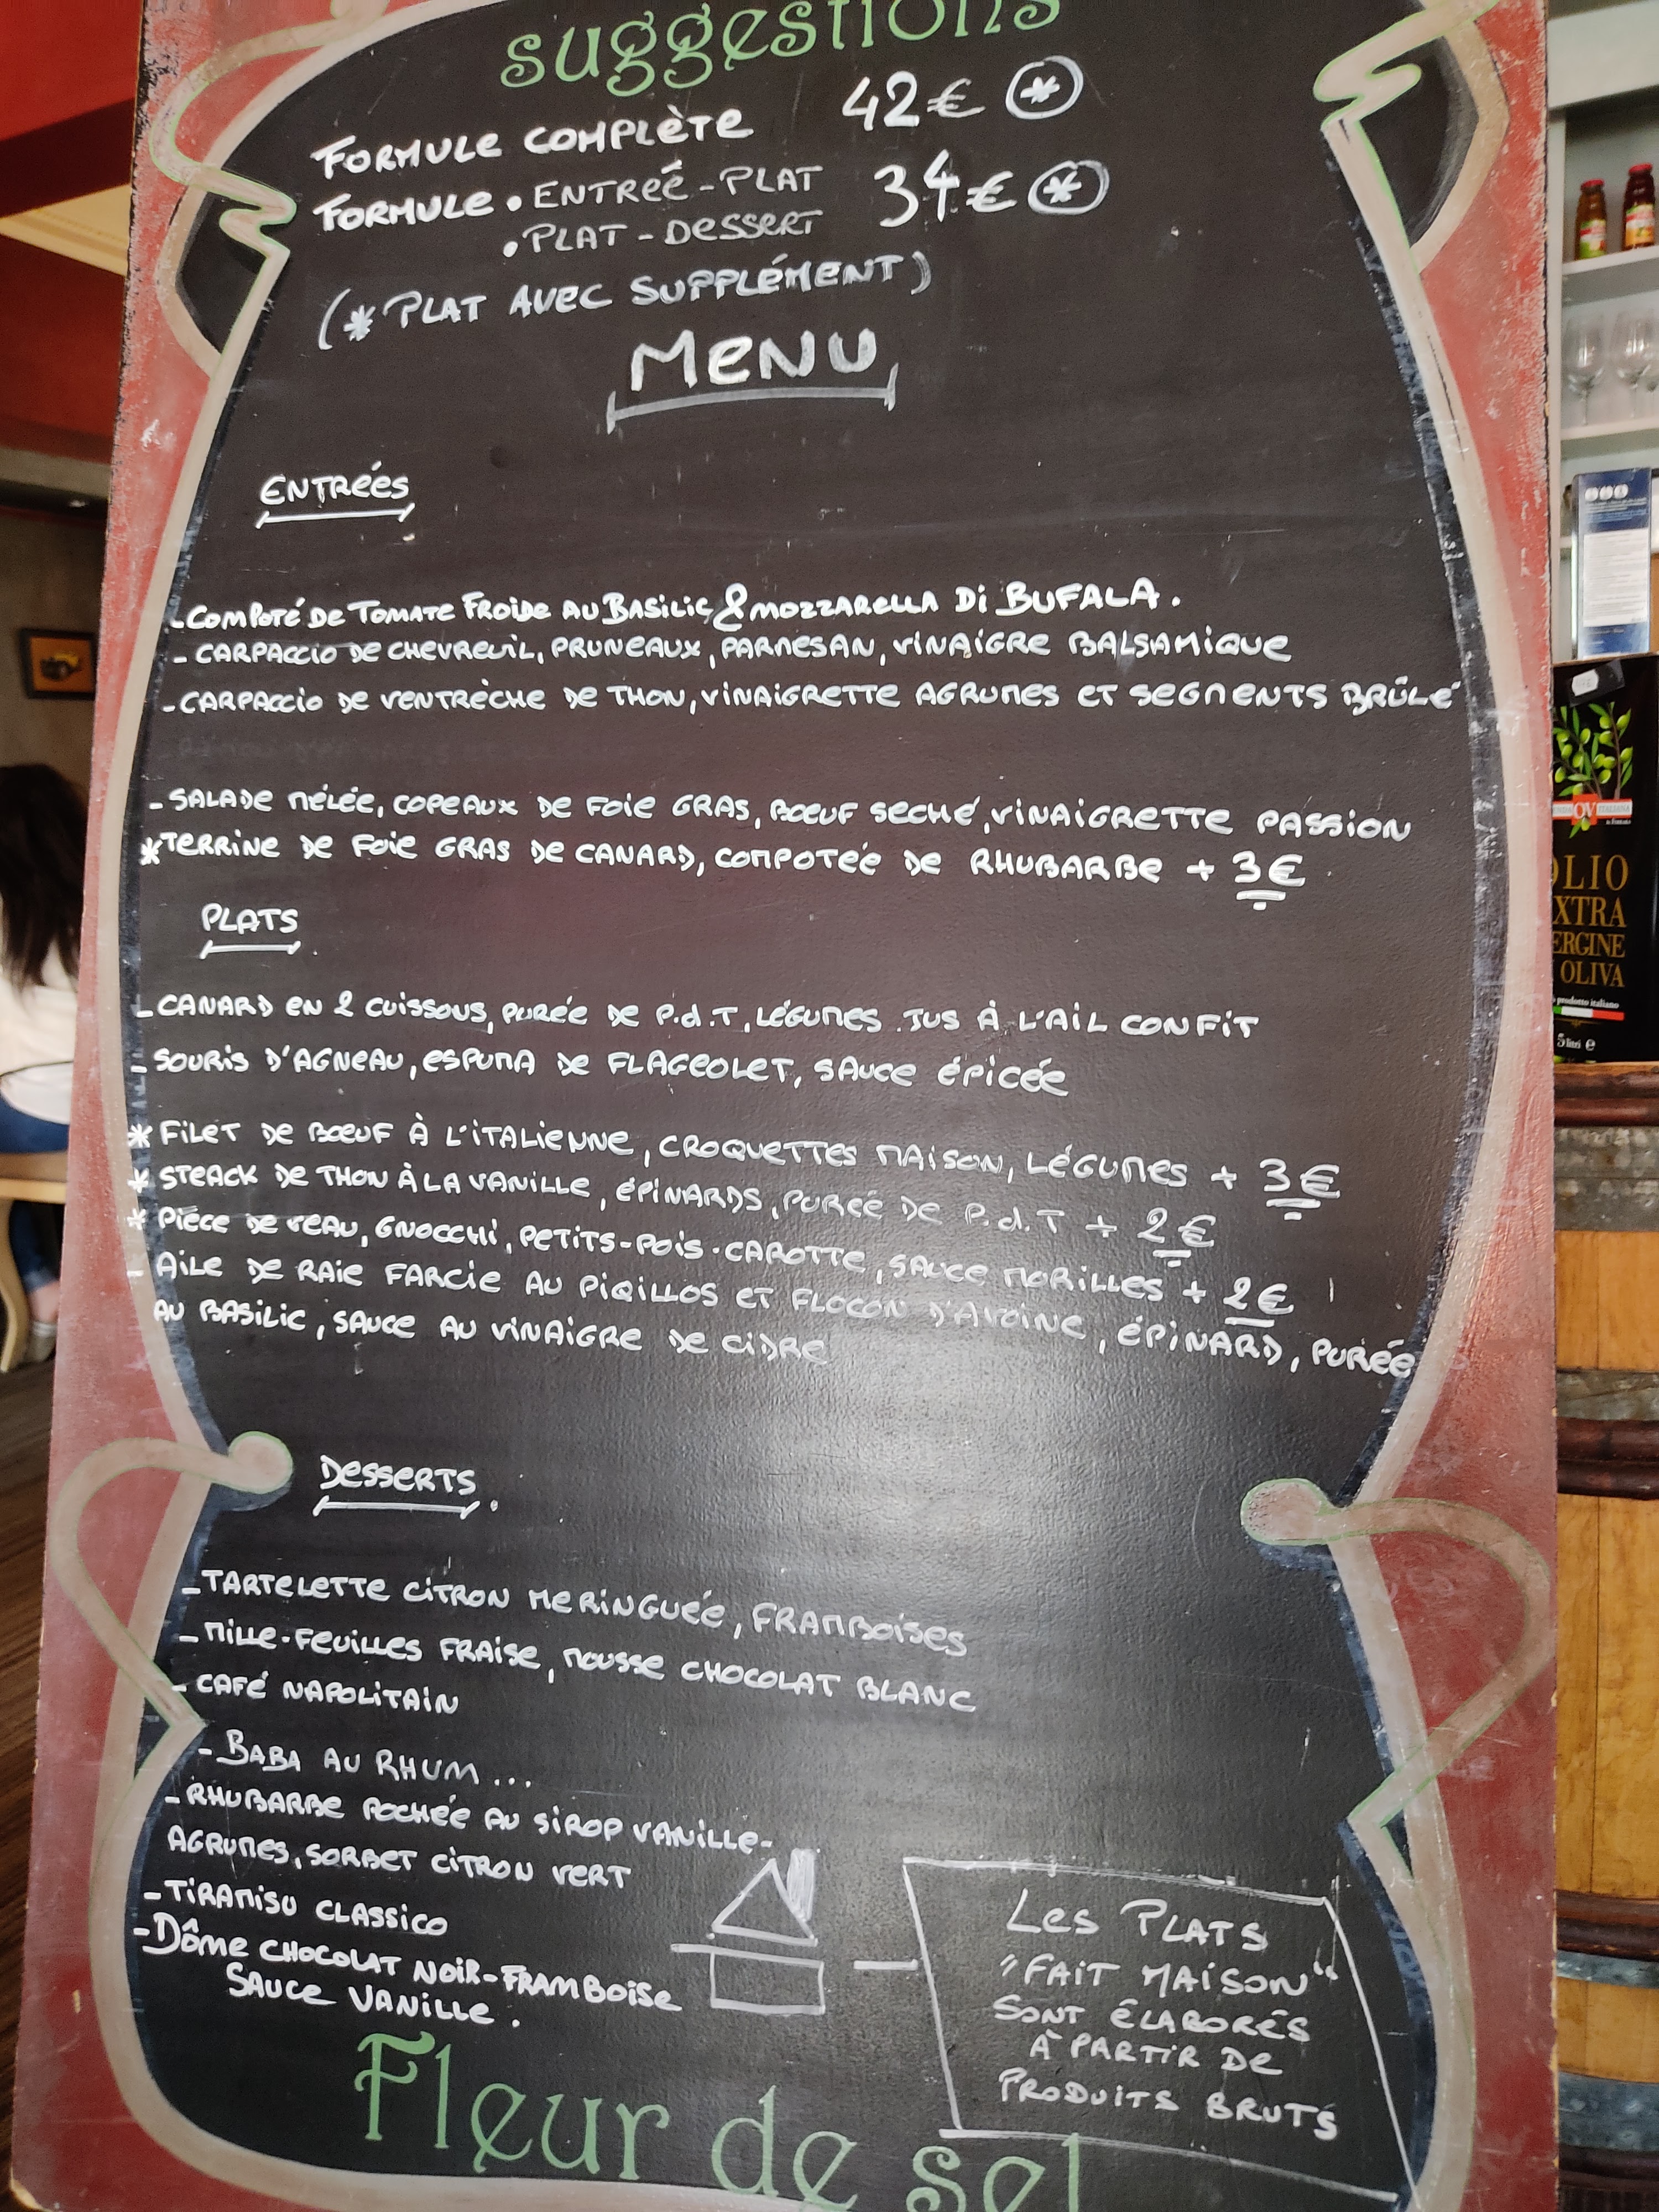 suggestions
FORMULE COMPLÈTE 42€ *
FORMULE • ENTRÉE-PLAT 34€ *
• PLAT-DESSERT
(* PLAT AVEC SUPPLÉMENT)
MENU
ENTRÉES
- COMPOTÉ DE TOMATE FROIDE AU BASILIC & MOZZARELLA DI BUFALA.
- CARPACCIO DE CHEVREUIL, PRUNEAUX, PARMESAN, VINAIGRE BALSAMIQUE
- CARPACCIO DE VENTRÈCHE DE THON, VINAIGRETTE AGRUMES ET SEGMENTS BRÛLÉ
- SALADE MÉLÉE, COPEAUX DE FOIE GRAS, BOEUF SECHÉ, VINAIGRETTE PASSION
* TERRINE DE FOIE GRAS DE CANARD, COMPOTÉE DE RHUBARBE + 3€
PLATS
- CANARD EN 2 CUISSOUS, PURÉE DE P.d.T, LÉGUMES. JUS À L'AIL CONFIT
- SOURIS D'AGNEAU, ESPUMA DE FLAGEOLET, SAUCE ÉPICÉE
* FILET DE BOEUF À L'ITALIENNE, CROQUETTES MAISON, LÉGUMES + 3€
* STEACK DE THON À LA VANILLE, ÉPINARDS, PUREÉ DE P.d.T + 2€
* PIÈCE DE VEAU, GNOCCHI, PETITS-POIS-CAROTTE, SAUCE MORILLES + 2€
- AILE DE RAIE FARCIE AU PIQILLOS ET FLOCON D'AVOINE, ÉPINARD, PURÉE
AU BASILIC, SAUCE AU VINAIGRE DE CIDRE
DESSERTS.
- TARTELETTE CITRON MERINGUÉE, FRAMBOISES
- MILLE-FEUILLES FRAISE, MOUSSE CHOCOLAT BLANC
- CAFÉ NAPOLITAIN
- BABA AU RHUM...
- RHUBARBE POCHÉE AU SIROP VANILLE-
AGRUMES, SORBET CITRON VERT
- TIRAMISU CLASSICO
- DÔME CHOCOLAT NOIR-FRAMBOISE
SAUCE VANILLE.
LES PLATS
"FAIT MAISON"
SONT ÉLABORÉS
À PARTIR DE
PRODUITS BRUTS
Fleur de sel
OV
OLIO
EXTRA
VERGINE
OLIVA
prodotto italiano
5 litri e